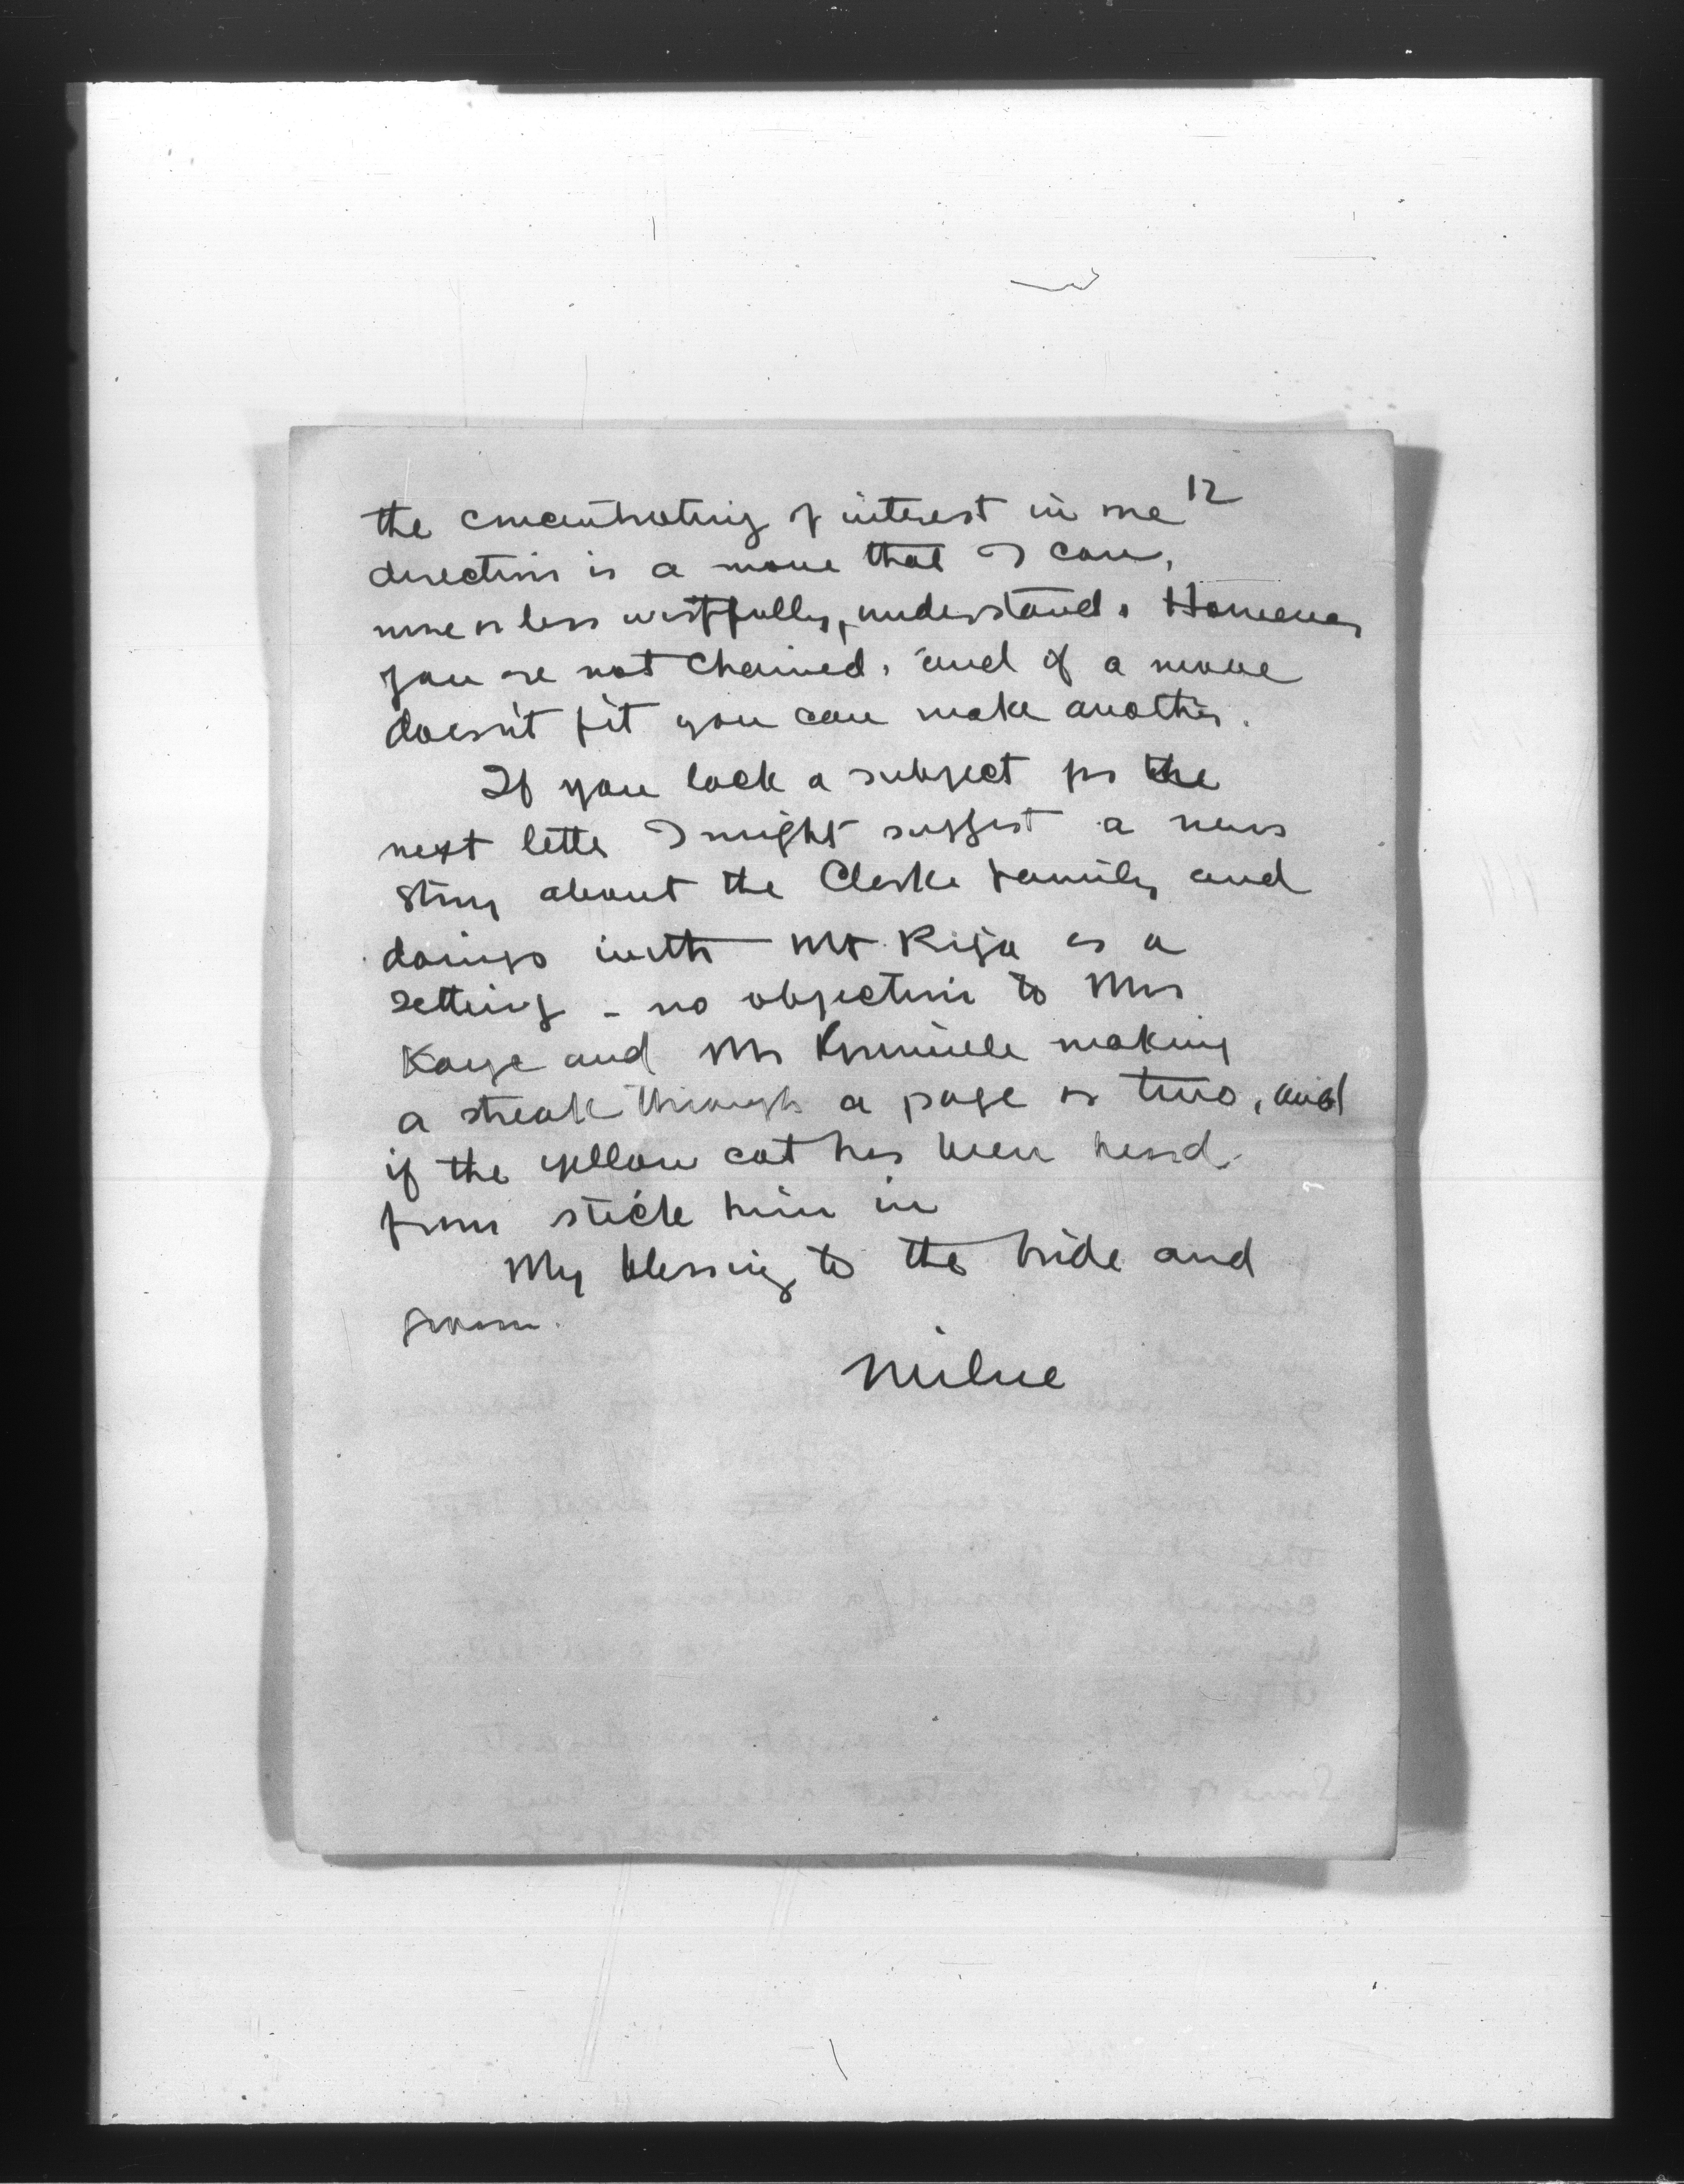 12
the concentrating of interest in one
direction is a move that I can,
more or less wistfully, understand. However
you are not chained, and if a move
doesn't fit you can make another.
If you lack a subject for the
next letter I might suggest a news
story about the Clarke family and
doings with Mt Riga as a
setting - no objection to Mrs
Kaye and Mr making
a streak through a page or two, and
if the yellow cat has been heard
from stick him in
My blessing to the bride and
groom.
Milne